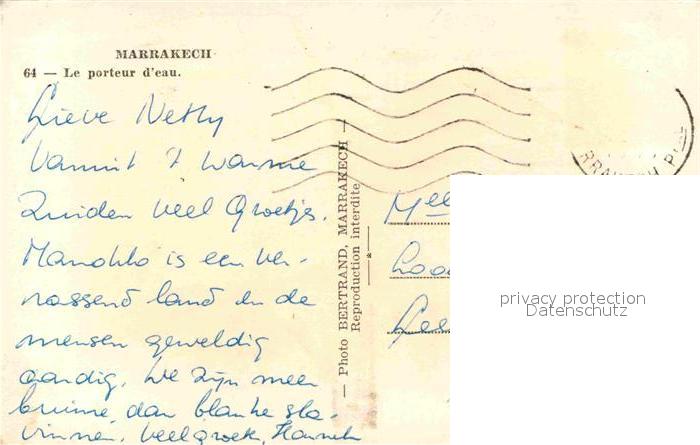 MARRAKECH
64 — Le porteur d'eau.
Lieve Netty
Vanuit 't warme
Zuiden veel Groetjes.
Marokko is een ver-
rassend land en de
mensen geweldig
aardig. We zijn meer
bruine dan blanke sla-
vinnen. Veel groet.
— Photo BERTRAND, MARRAKECH —
Reproduction interdite
Mell
privacy protection
Datenschutz